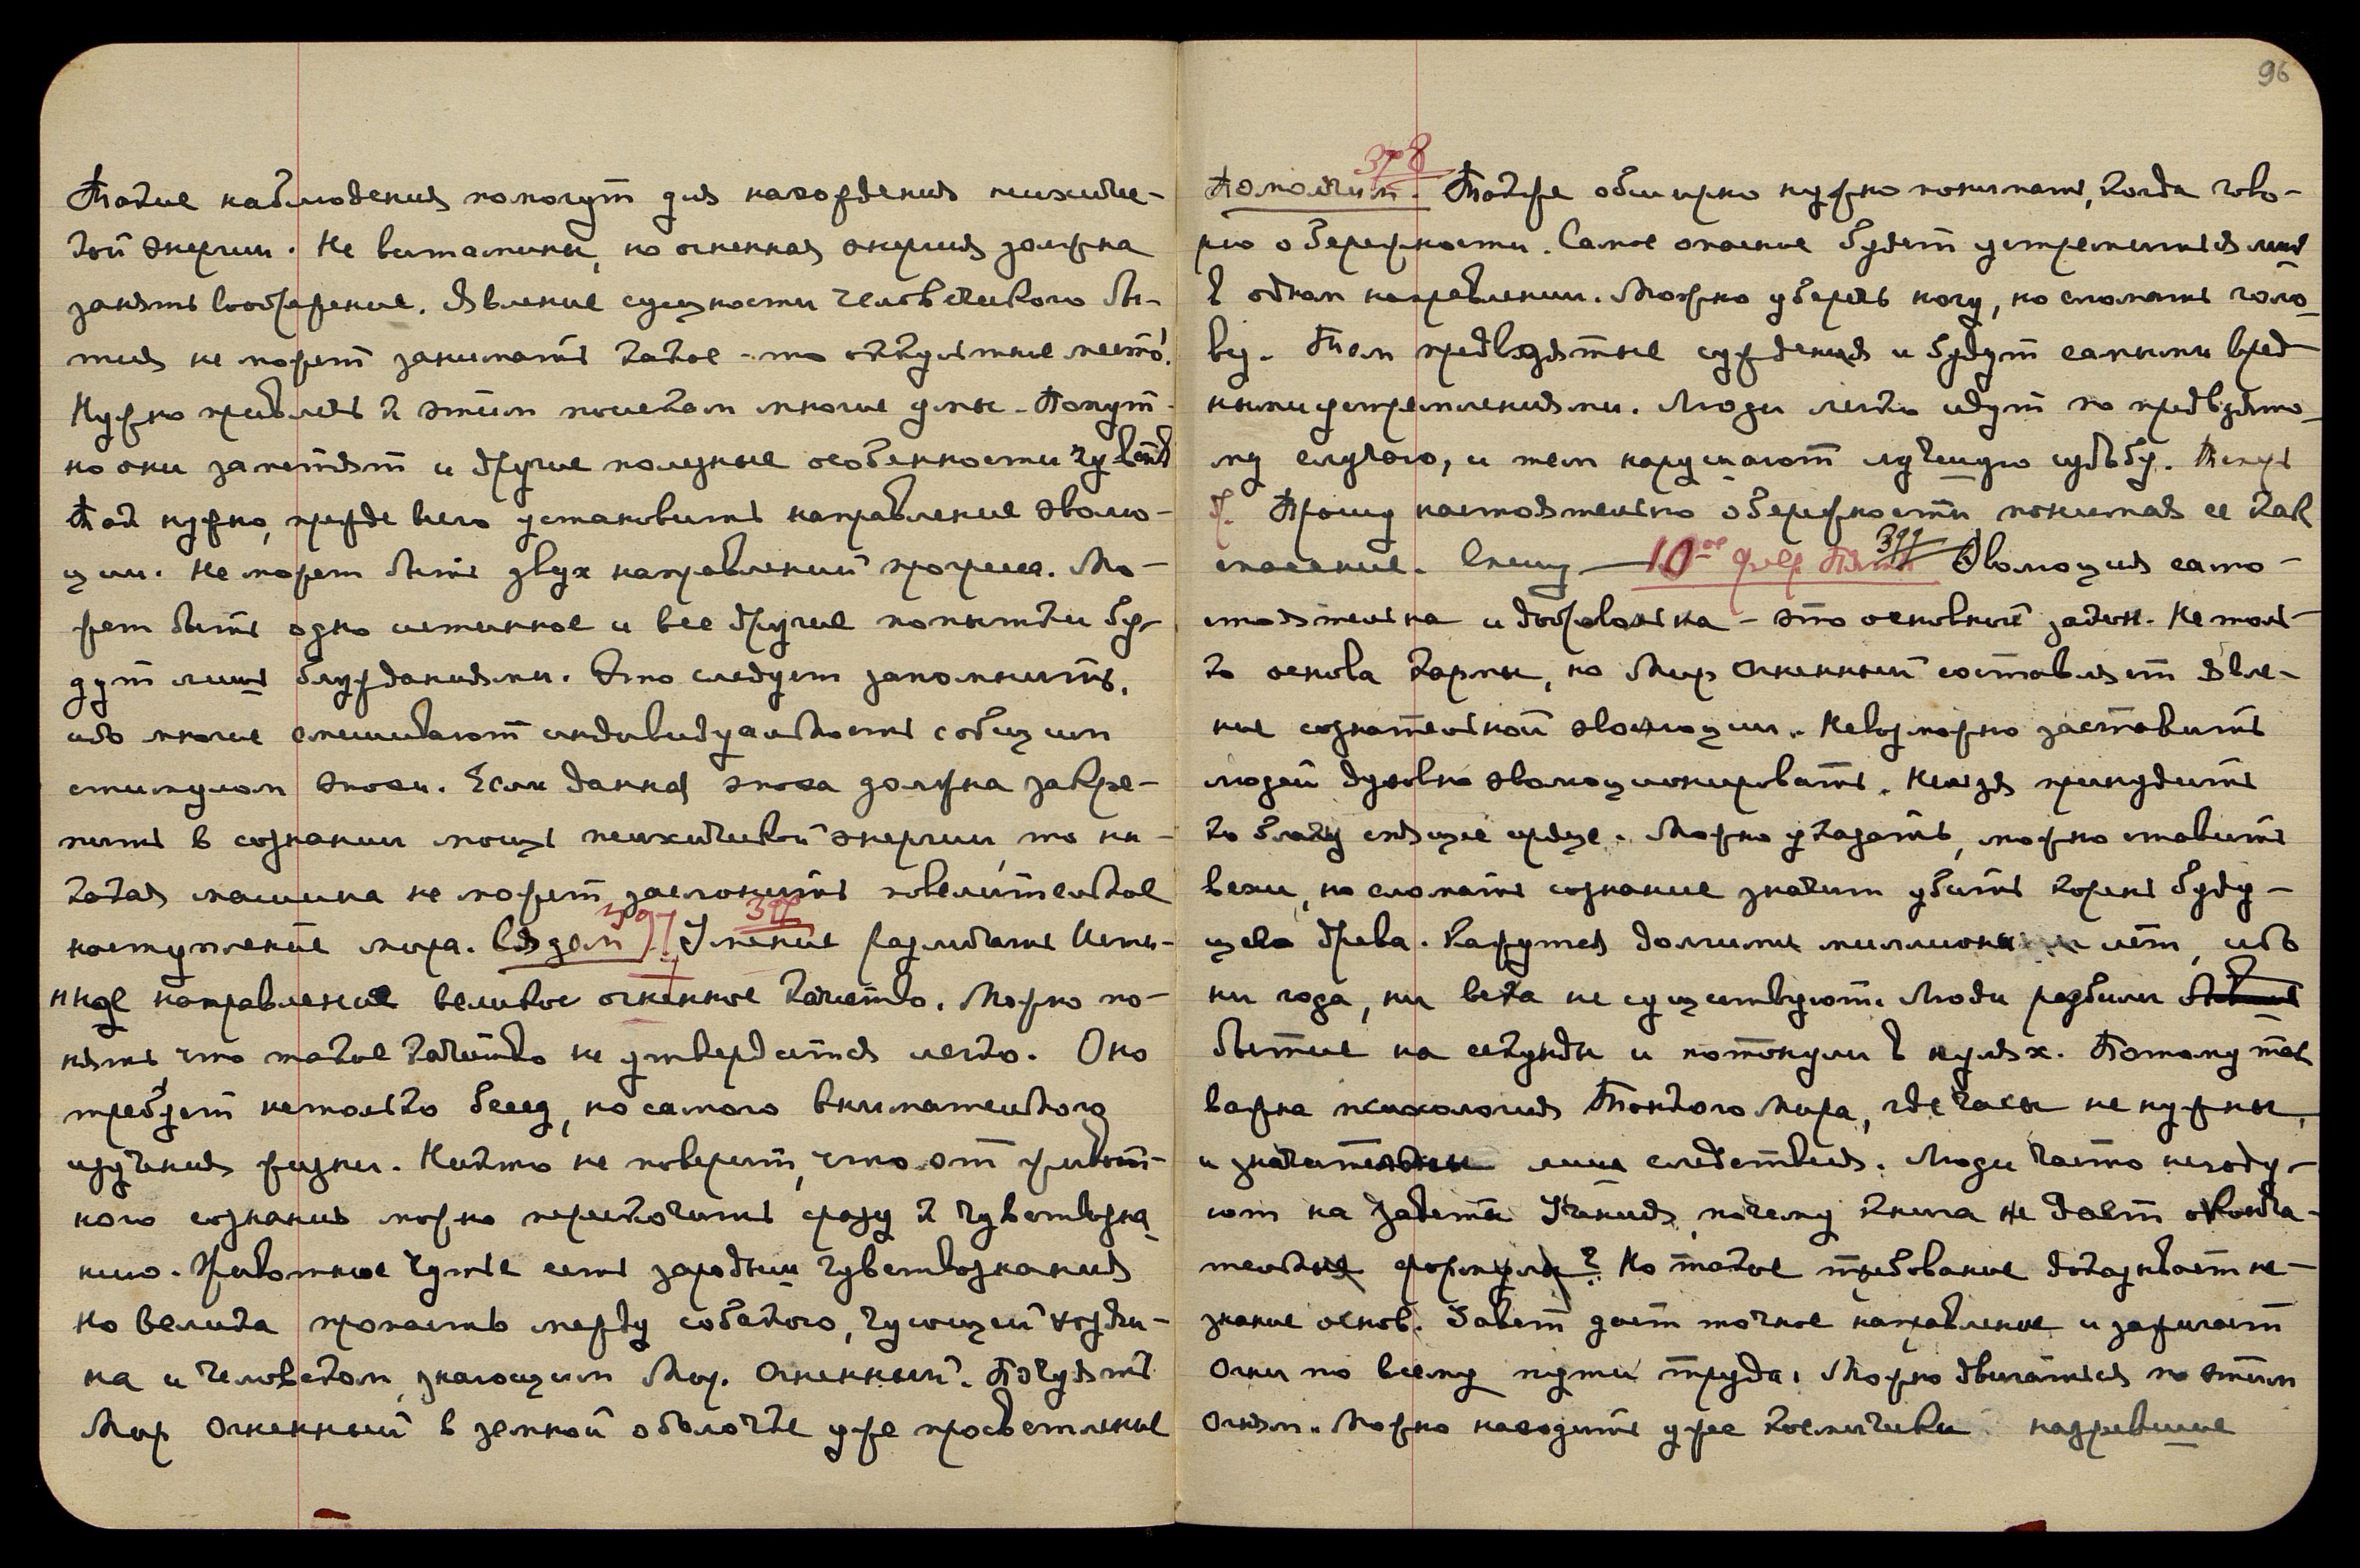 Такие наблюдения помогут для нахождения психиче-
ской энергии. Не витамины, но огненная энергия должна
занять воображение. Явление сущности человеческого бы-
тия не может занимать какое-то оккультное место.
Нужно привлечь к этим поискам многие умы. Попут-
но они заметят и другие полезные особенности чувств
Так нужно, прежде всего установить направление эволю-
ции. Не может быть двух направлений прогресса. Мо-
жет быть одно истинное и все другие попытки бу-
дут лишь блужданиями. Это следует запомнить,
ибо многие смешивают индивидуальность с общим
стимулом эпохи. Если данная эпоха должна закре-
пить в сознании мощь психической энергии, то ни-
какая машина не может заслонить повелительное
наступление мира. 397 398 Умение различать исти-
нное направление великое огненное качество. Можно по-
нять что такое качество не утвердится легко. Оно
требует не только бесед, но самого внимательного
изучения жизни. Никто не поверит, что от живот-
ного сознания можно перескочить сразу к чувствозна-
нию. Животное чутье есть зародыш чувствознания
но велика пропасть между собакою, чующей хозяи-
на и человеком, знающим Мир Огненный. Почуять
Мир Огненный в земной оболочке уже просветление
96
378
Помолчим. Также обширно нужно понимать, когда гово-
рю о бережности. Самое опасное будет устремиться лишь
в одном направлении. Можно уберечь ногу, но сломать голо-
ву. Тем предвзятые суждения и будут самыми вред-
ными устремлениями. Люди легко идут по предвзято-
му случаю, и тем нарушают лучшую судьбу. Теперь
Прошу настоятельно о бережности понимая ее как
спасение. Спешу — 10ое фев 399 Эволюция само-
стоятельна и добровольна - это основной закон. Не толь-
ко основа кармы, но Мир Огненный составляет явле-
ние сознательной эволюции. Невозможно заставить
людей духовно эволюционировать. Нельзя принудить
ко благу спящее сердце. Можно указать, можно ставить
вехи, но сломать сознание значит убить корни буду-
щего древа. Кажутся долгими миллионы лет, ибо
ни года, ни века не существуют. Люди разбили
бытие на секунды и потонули в нулях. Потому так
важна психология Тонкого Мира, где часы не нужны,
и значительны лишь следствия. Люди часто негоду-
ют на заветы Учения, почему книга не дает оконча-
тельные формулы? Но такое требование доказывает не-
знание основ. Завет дает точное направление и зажигает
Огни по всему пути труда. Можно двигаться по этим
Огням. Можно находить уже космически назревшие